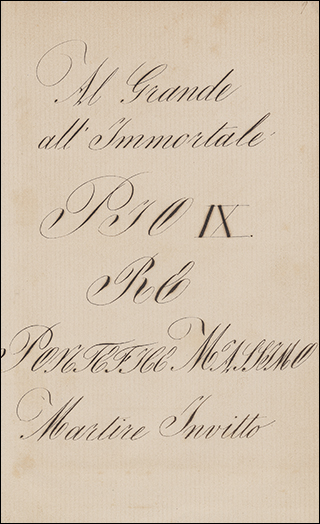 Al Grande
all' Immortale
PIO IX
RE
PONTEFICE MASSIMO
Martire Invitto